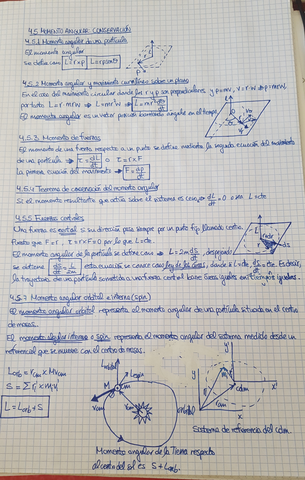 4.5 MOMENTO ANGULAR. CONSERVACIÓN
4.5.1 Momento angular de una partícula
El momento angular
Se define como L = r x p → L = r p senθ
4.5.2 Momento angular y movimiento curvilíneo sobre un plano
En el caso del movimiento circular donde los r y p son perpendiculares y p = mv, v = r·w ⇒ p = mrw
por tanto L = r·mrw ⇒ L = mr²w ⇒ L = mr² dθ/dt
El momento angular es un vector para un
4.5.3 Momento de fuerzas
El momento de una fuerza respecto a un punto se define mediante la segunda ecuación del movimiento
de una partícula ⇒ τ = dL/dt o τ = r x F
La primera ecuación del movimiento ⇒ F = dp/dt
4.5.4 Teorema de conservación del momento angular
Si el momento resultante que actúa sobre el sistema es cero ⇒ dL/dt = 0 ⇒ L = cte
4.5.5 Fuerzas centrales
Una fuerza es central si su dirección pasa siempre por un punto fijo llamado centro.
Puesto que F = r, τ = r x F = 0 por lo que L = cte.
El momento angular de la partícula se define como ⇒ L = 2m ds/dt, despejando
Se obtiene ds/dt = L/2m esta ecuación se conoce como ley de las áreas, donde si L = cte, ds/dt = cte. Es decir,
la trayectoria de una partícula sometida a una fuerza central barre áreas iguales en tiempos iguales.
4.5.7 Momento angular orbital e interno (spin)
El momento angular orbital representa el momento angular de una partícula situada en el centro
de masas.
El momento angular interno o spin, representa el momento angular del sistema medido desde un
referencial que se mueve con el centro de masas.
L orb = r cm x M v cm
S = Σ r'i x mi v'i
L = L orb + S
Momento angular de la Tierra respecto
al centro del sol es S + L orb.
Sistema de referencia del cdm.